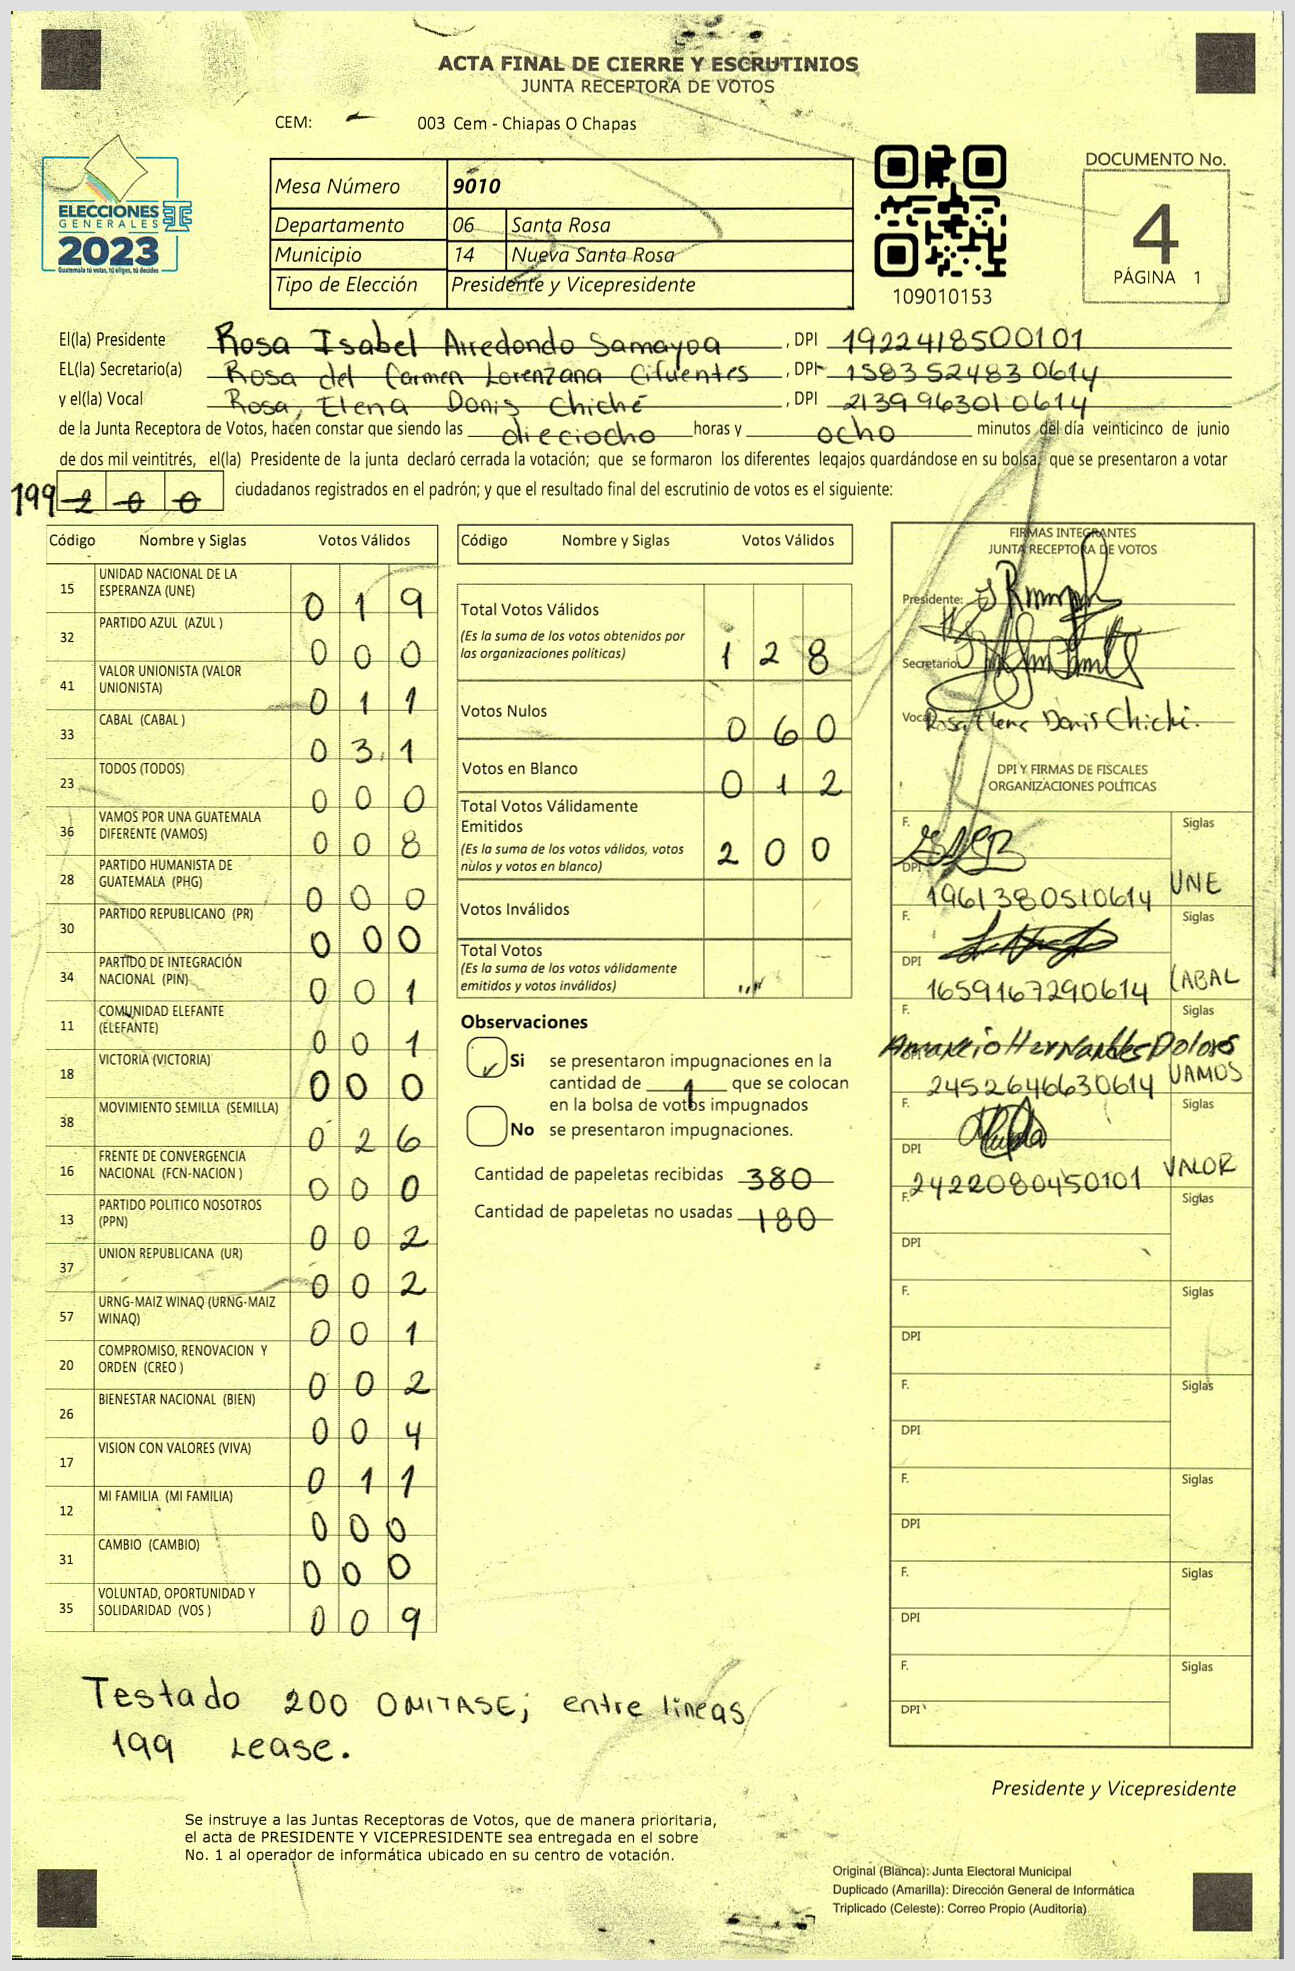 ACTA FINAL DE CIERRE Y ESCRUTINIOS
JUNTA RECEPTORA DE VOTOS
CEM: 003 Cem - Chiapas O Chapas
ELECCIONES
GENERALES
2023
Guatemala tú votas, tú eliges, tú decides
Mesa Número 9010
Departamento 06 Santa Rosa
Municipio 14 Nueva Santa Rosa
Tipo de Elección Presidente y Vicepresidente
109010153
DOCUMENTO No.
4
PÁGINA 1
El(la) Presidente Rosa Isabel Arredondo Samayoa, DPI 1922418500101
EL(la) Secretario(a) Rosa del Carmen Lorenzana Cifuentes, DPI 1583524830614
y el(la) Vocal Rosa, Elena Donis Chiché, DPI 2139963010614
de la Junta Receptora de Votos, hacen constar que siendo las dieciocho horas y ocho minutos del día veinticinco de junio
de dos mil veintitrés, el(la) Presidente de la junta declaró cerrada la votación; que se formaron los diferentes legajos guardándose en su bolsa, que se presentaron a votar
199 200 ciudadanos registrados en el padrón; y que el resultado final del escrutinio de votos es el siguiente:
Código Nombre y Siglas Votos Válidos
15 UNIDAD NACIONAL DE LA
ESPERANZA (UNE) 0 1 9
32 PARTIDO AZUL (AZUL ) 0 0 0
41 VALOR UNIONISTA (VALOR
UNIONISTA) 0 1 1
33 CABAL (CABAL ) 0 3 1
23 TODOS (TODOS) 0 0 0
36 VAMOS POR UNA GUATEMALA
DIFERENTE (VAMOS) 0 0 8
28 PARTIDO HUMANISTA DE
GUATEMALA (PHG) 0 0 0
30 PARTIDO REPUBLICANO (PR) 0 0 0
34 PARTIDO DE INTEGRACIÓN
NACIONAL (PIN) 0 0 1
11 COMUNIDAD ELEFANTE
(ELEFANTE) 0 0 1
18 VICTORIA (VICTORIA) 0 0 0
38 MOVIMIENTO SEMILLA (SEMILLA) 0 2 6
16 FRENTE DE CONVERGENCIA
NACIONAL (FCN-NACION ) 0 0 0
13 PARTIDO POLITICO NOSOTROS
(PPN) 0 0 2
37 UNION REPUBLICANA (UR) 0 0 2
57 URNG-MAIZ WINAQ (URNG-MAIZ
WINAQ) 0 0 1
20 COMPROMISO, RENOVACION Y
ORDEN (CREO ) 0 0 2
26 BIENESTAR NACIONAL (BIEN) 0 0 4
17 VISION CON VALORES (VIVA) 0 1 1
12 MI FAMILIA (MI FAMILIA) 0 0 0
31 CAMBIO (CAMBIO) 0 0 0
35 VOLUNTAD, OPORTUNIDAD Y
SOLIDARIDAD (VOS ) 0 0 9
Código Nombre y Siglas Votos Válidos
Total Votos Válidos
(Es la suma de los votos obtenidos por
las organizaciones políticas) 1 2 8
Votos Nulos 0 6 0
Votos en Blanco 0 1 2
Total Votos Válidamente
Emitidos
(Es la suma de los votos válidos, votos
nulos y votos en blanco) 2 0 0
Votos Inválidos
Total Votos
(Es la suma de los votos válidamente
emitidos y votos inválidos)
Observaciones
Si se presentaron impugnaciones en la
cantidad de 1 que se colocan
en la bolsa de votos impugnados
No se presentaron impugnaciones.
Cantidad de papeletas recibidas 380
Cantidad de papeletas no usadas 180
FIRMAS INTEGRANTES
JUNTA RECEPTORA DE VOTOS
Presidente:
Secretario
Vocal Rosa Elena Donis Chiché.
DPI Y FIRMAS DE FISCALES
ORGANIZACIONES POLÍTICAS
F. Siglas
DPI 1961380510614 UNE
F. Siglas
DPI 1659167290614 CABAL
F. Siglas
Amancio Hernandes Dolores
DPI 2452646630614 VAMOS
F. Siglas
DPI 2422080450101 VALOR
F. Siglas
DPI
F. Siglas
DPI
F. Siglas
DPI
F. Siglas
DPI
F. Siglas
DPI
F. Siglas
DPI
Testado 200 OMITASE; entre lineas
199 Lease.
Presidente y Vicepresidente
Se instruye a las Juntas Receptoras de Votos, que de manera prioritaria,
el acta de PRESIDENTE Y VICEPRESIDENTE sea entregada en el sobre
No. 1 al operador de informática ubicado en su centro de votación.
Original (Blanca): Junta Electoral Municipal
Duplicado (Amarilla): Dirección General de Informática
Triplicado (Celeste): Correo Propio (Auditoría)